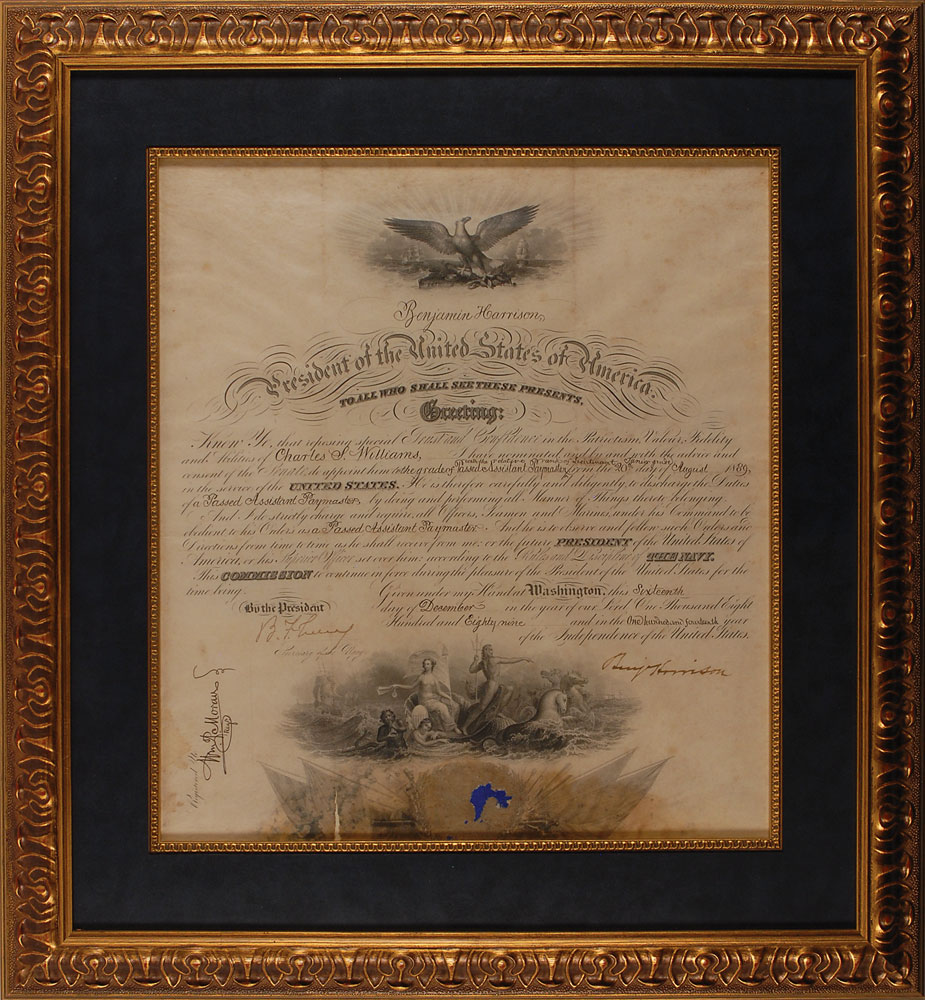 Benjamin Harrison,
President of the United States of America.
TO ALL WHO SHALL SEE THESE PRESENTS,
Greeting:
Know Ye, that reposing special Trust and Confidence in the Patriotism, Valour, Fidelity
and Abilities of Charles S. Williams, I have nominated and by and with the advice and
consent of the Senate do appoint him to the grade of Passed Assistant Paymaster from the day of August 1889,
in the service of the UNITED STATES. He is therefore carefully and diligently to discharge the Duties
of a Passed Assistant Paymaster, by doing and performing all Manner of Things thereto belonging.
And I do strictly charge and require all Officers, Seamen and Marines under his Command to be
obedient to his Orders as a Passed Assistant Paymaster. And he is to observe and follow such Orders and
Directions from time to time as he shall receive from me, or the future PRESIDENT of the United States of
America, or his Superior Officer set over him, according to the Rules and Discipline of THE NAVY.
This COMMISSION to continue in force during the pleasure of the President of the United States for the
time being.
Given under my Hand at Washington, this Sixteenth
By the President
day of December in the year of our Lord One Thousand Eight
Hundred and Eighty nine and in the One hundred and fourteenth year
of the Independence of the United States.
Secretary of the Navy.
Benj Harrison